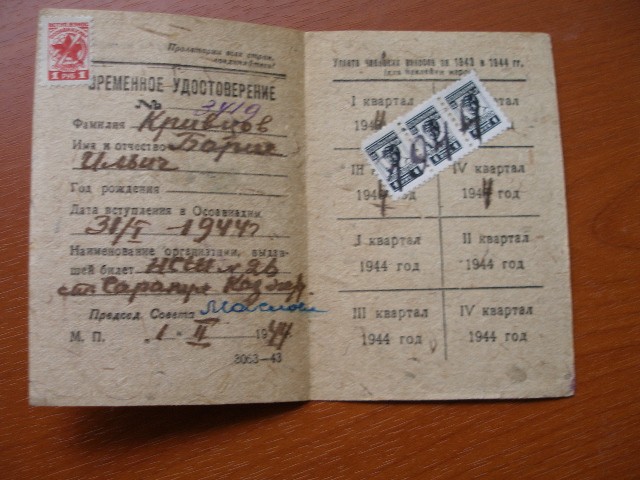 1 РУБ 1
Пролетарии всех стран,
соединяйтесь!
ВРЕМЕННОЕ УДОСТОВЕРЕНИЕ
№ 3419
Фамилия Кривцов
Имя и отчество Борис
Ильич
Год рождения
Дата вступления в Осоавиахим
31/I 1944 г
Наименование организации, выдав-
шей билет НСШ № 26
ст. Сарапул Каз. ж.д.
Председ. Совета
М. П. 1 II 1944
3063—43
Уплата членских взносов за 1943 и 1944 гг.
(для наклейки марок)
I квартал
1944
III
1944 год
IV квартал
1944 год
I квартал
1944 год
II квартал
1944 год
III квартал
1944 год
IV квартал
1944 год
1944